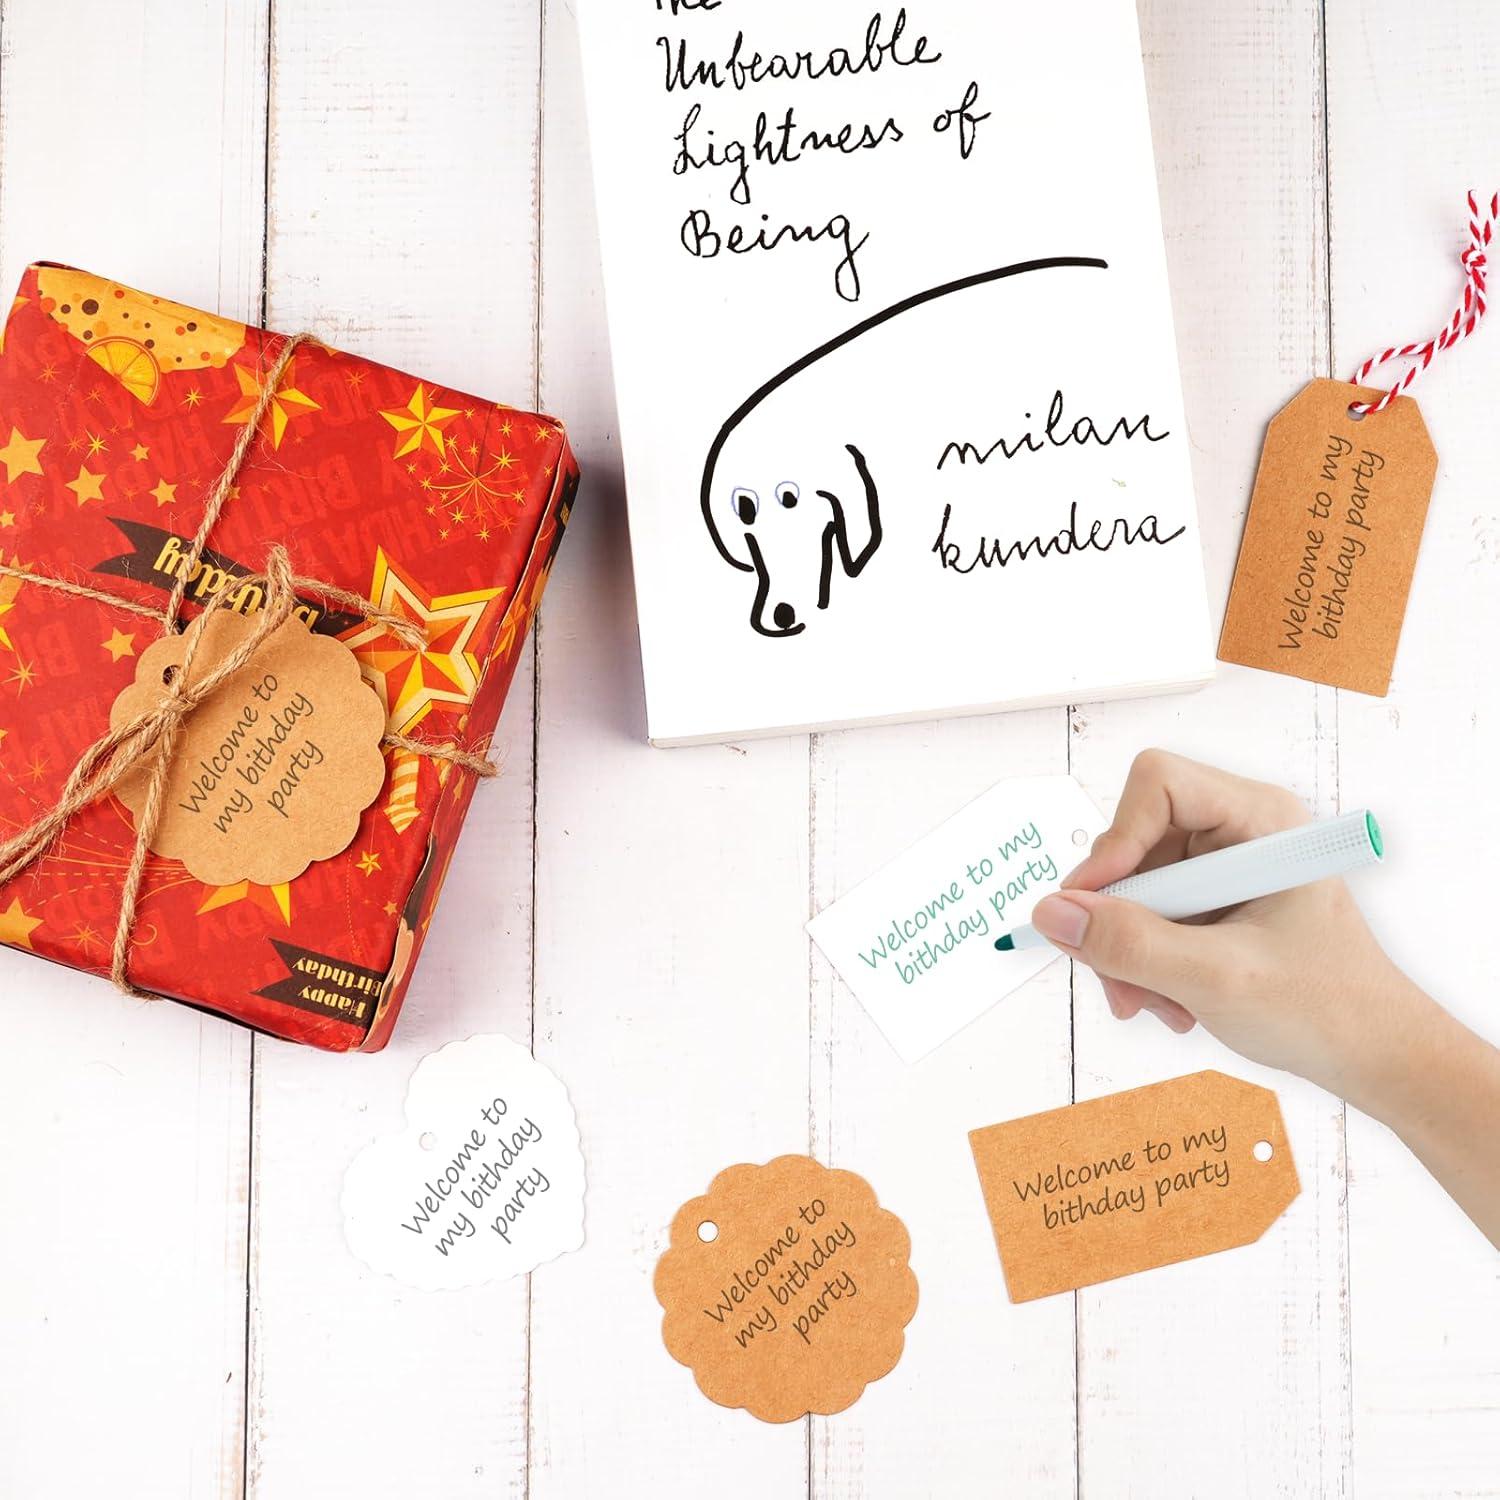 The
Unbearable
Lightness of
Being
milan
kundera
Birthday
Welcome to
my bithday
party
Happy
Birthday
Welcome to my
bithday party
Welcome to my
bithday party
Welcome to
my bithday
party
Welcome to
my bithday
party
Welcome to my
bithday party